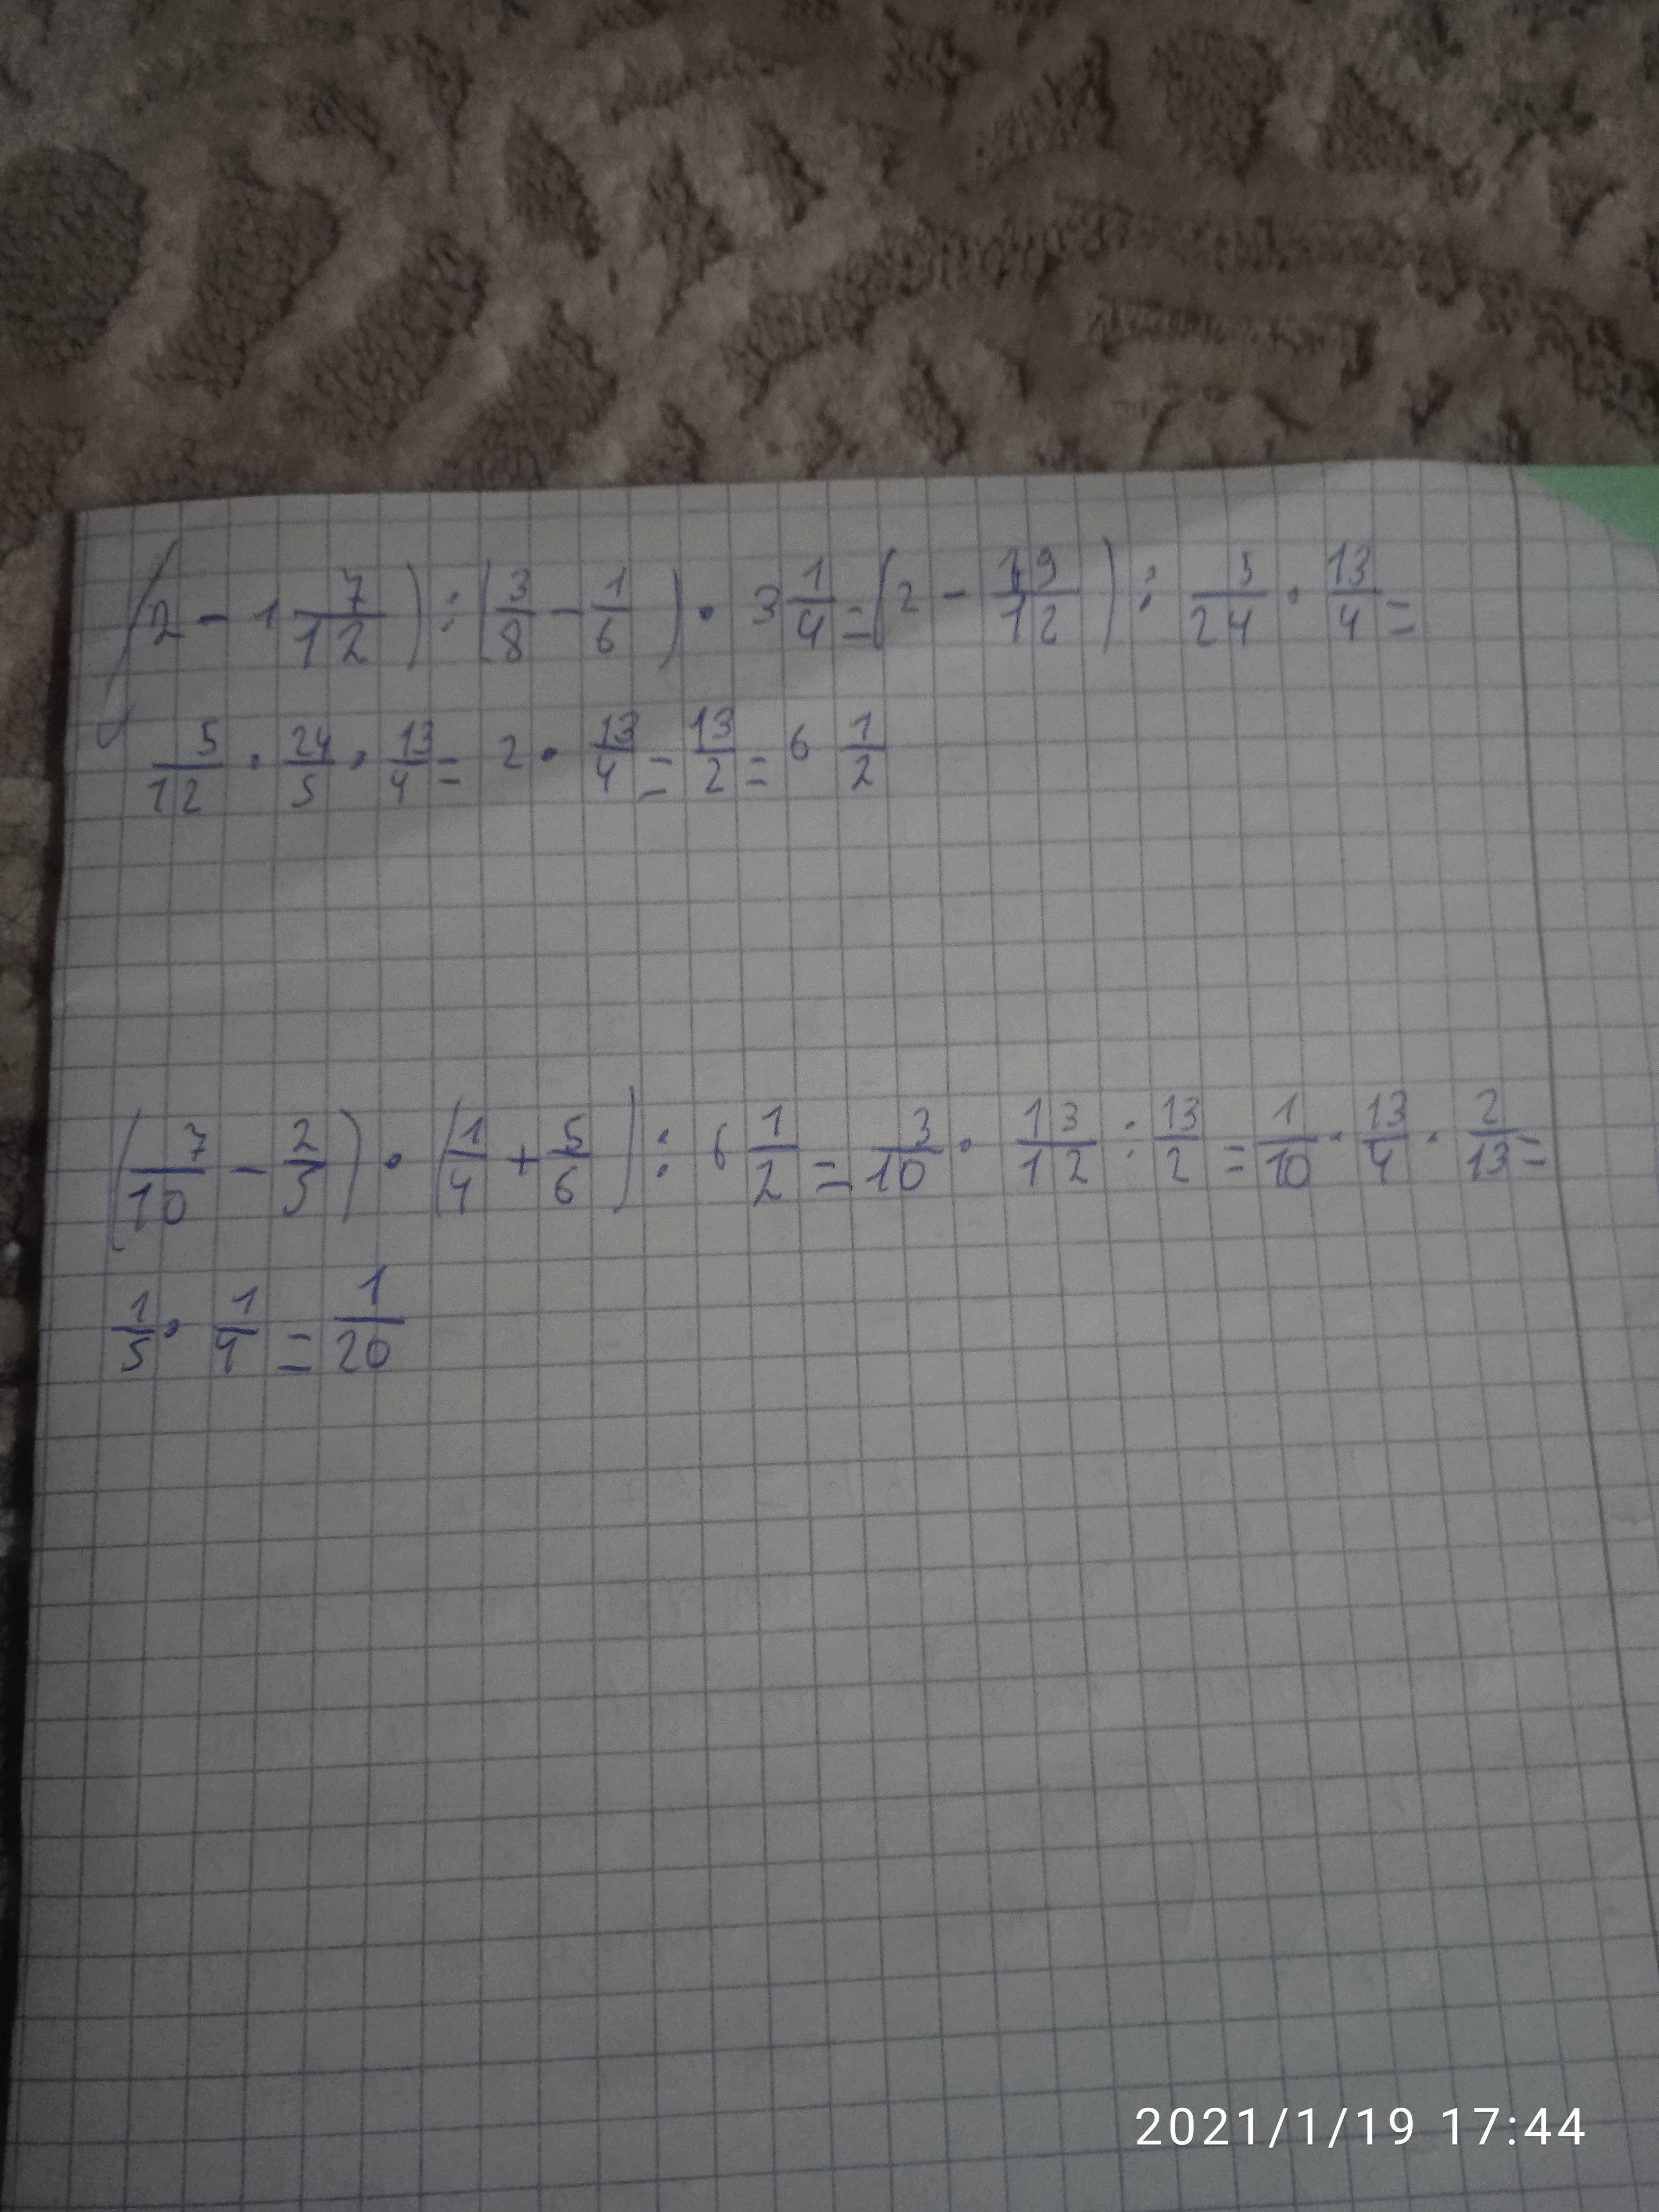 (2 - 1 7/12) : (3/8 - 1/6) · 3 1/4 = (2 - 19/12) : 5/24 · 13/4 =
5/12 · 24/5 · 13/4 = 2 · 13/4 = 13/2 = 6 1/2
(7/10 - 2/5) · (1/4 + 5/6) : 6 1/2 = 3/10 · 13/12 : 13/2 = 1/10 · 13/4 · 2/13 =
1/5 · 1/4 = 1/20
2021/1/19 17:44